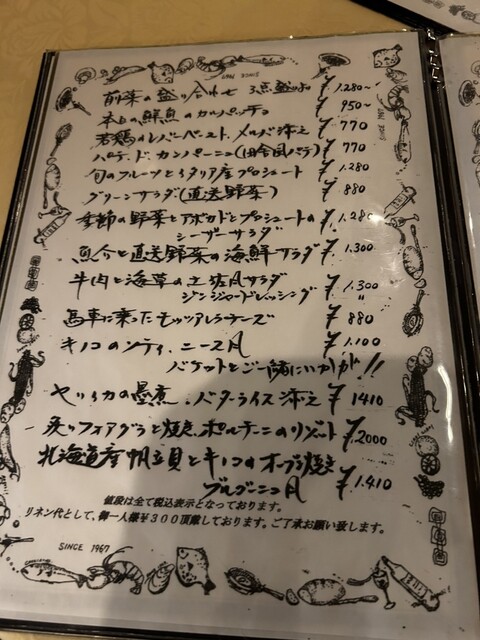 SINCE 1967
前菜の盛り合わせ 3点盛り ¥1.280~
本日の鮮魚のカルパッチョ ¥950~
若鶏のレバーペースト、メルバ添え ¥770
パテ・ド・カンパーニュ(田舎風パテ) ¥770
旬のフルーツとイタリア産プロシュート ¥1.280
グリーンサラダ(直送野菜) ¥880
季節の野菜とアボカドとプロシュートの ¥1.280
シーザーサラダ
魚介と直送野菜の海鮮サラダ ¥1.300
牛肉と海草の土佐風サラダ ¥1.300
ジンジャードレッシング 〃
馬車に乗ったモッツァレラチーズ ¥880
キノコのソティ、ニース風 ¥1.100
バケットとご一緒にいかが!!
ヤリイカの墨煮、バターライス添え ¥1410
炙りフォアグラと焼きポルチーニのリゾット ¥2000
北海道産帆立貝とキノコのオーブン焼き
ブルゴーニュ風 ¥1.410
値段は全て税込表示となっております。
リネン代として、御一人様¥300頂戴しております。ご了承お願い致します。
SINCE 1967
SINCE 1967